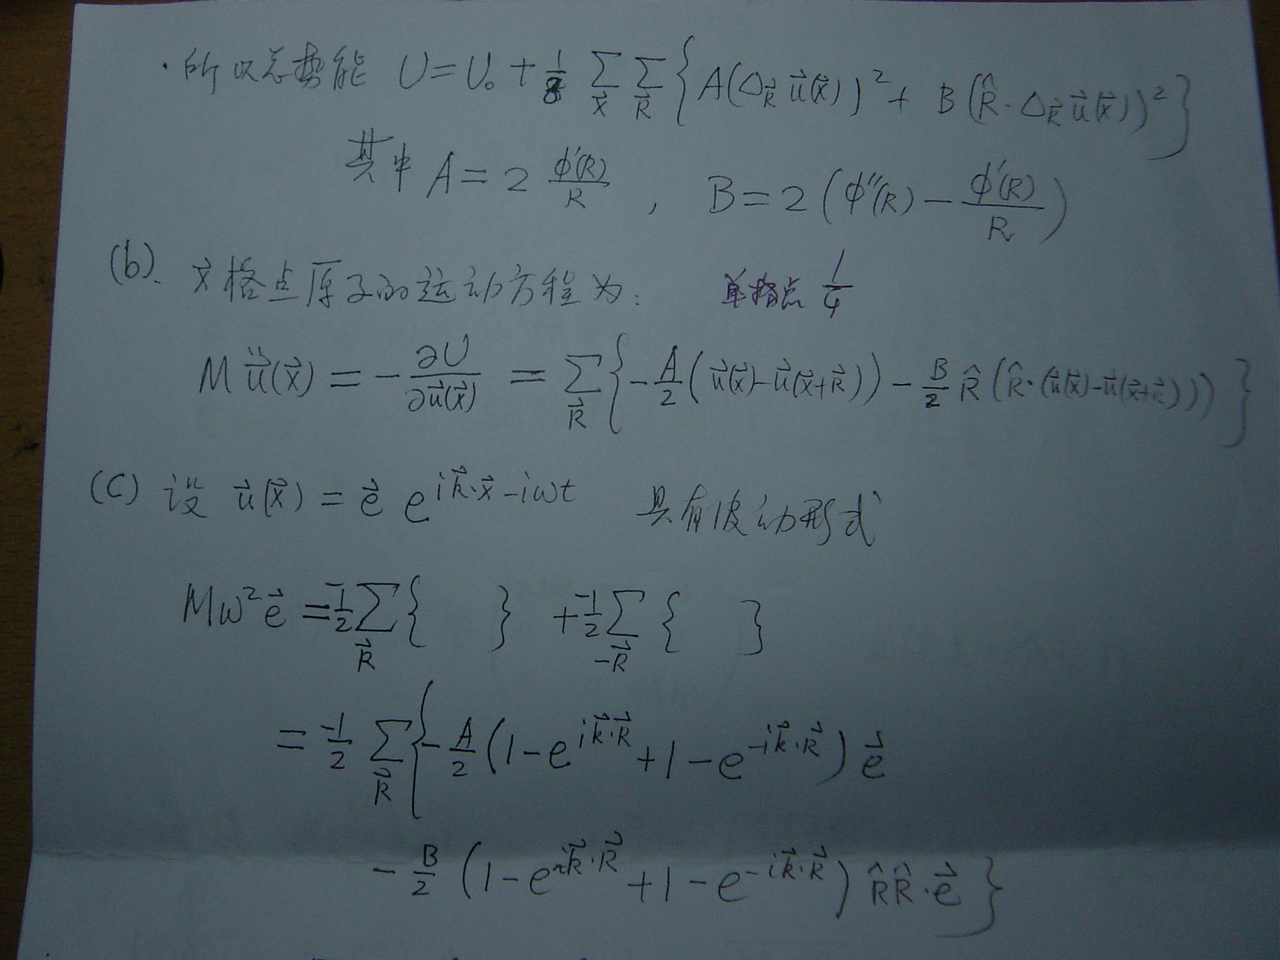 ·所以总势能 U=U₀+1/8 Σ_x⃗ Σ_R⃗ {A(Δ_R⃗ u⃗(x⃗))²+ B(R̂·Δ_R⃗ u⃗(x⃗))²}
其中 A=2 φ'(R)/R , B=2(φ''(R)-φ'(R)/R)
(b). x⃗格点原子的运动方程为: 单格点 1/4
M ü⃗(x⃗) = -∂U/∂u⃗(x⃗) = Σ_R⃗ {-A/2(u⃗(x⃗)-u⃗(x⃗+R⃗))-B/2 R̂(R̂·(u⃗(x⃗)-u⃗(x⃗+R⃗)))}
(c) 设 u⃗(x⃗)=e⃗ e^{ik⃗·x⃗-iωt} 具有波动形式
Mω²e⃗ = -1/2 Σ_R⃗ { } + -1/2 Σ_-R⃗ { }
= -1/2 Σ_R⃗ {-A/2(1-e^{ik⃗·R⃗}+1-e^{-ik⃗·R⃗})e⃗
-B/2(1-e^{ik⃗·R⃗}+1-e^{-ik⃗·R⃗})R̂R̂·e⃗}